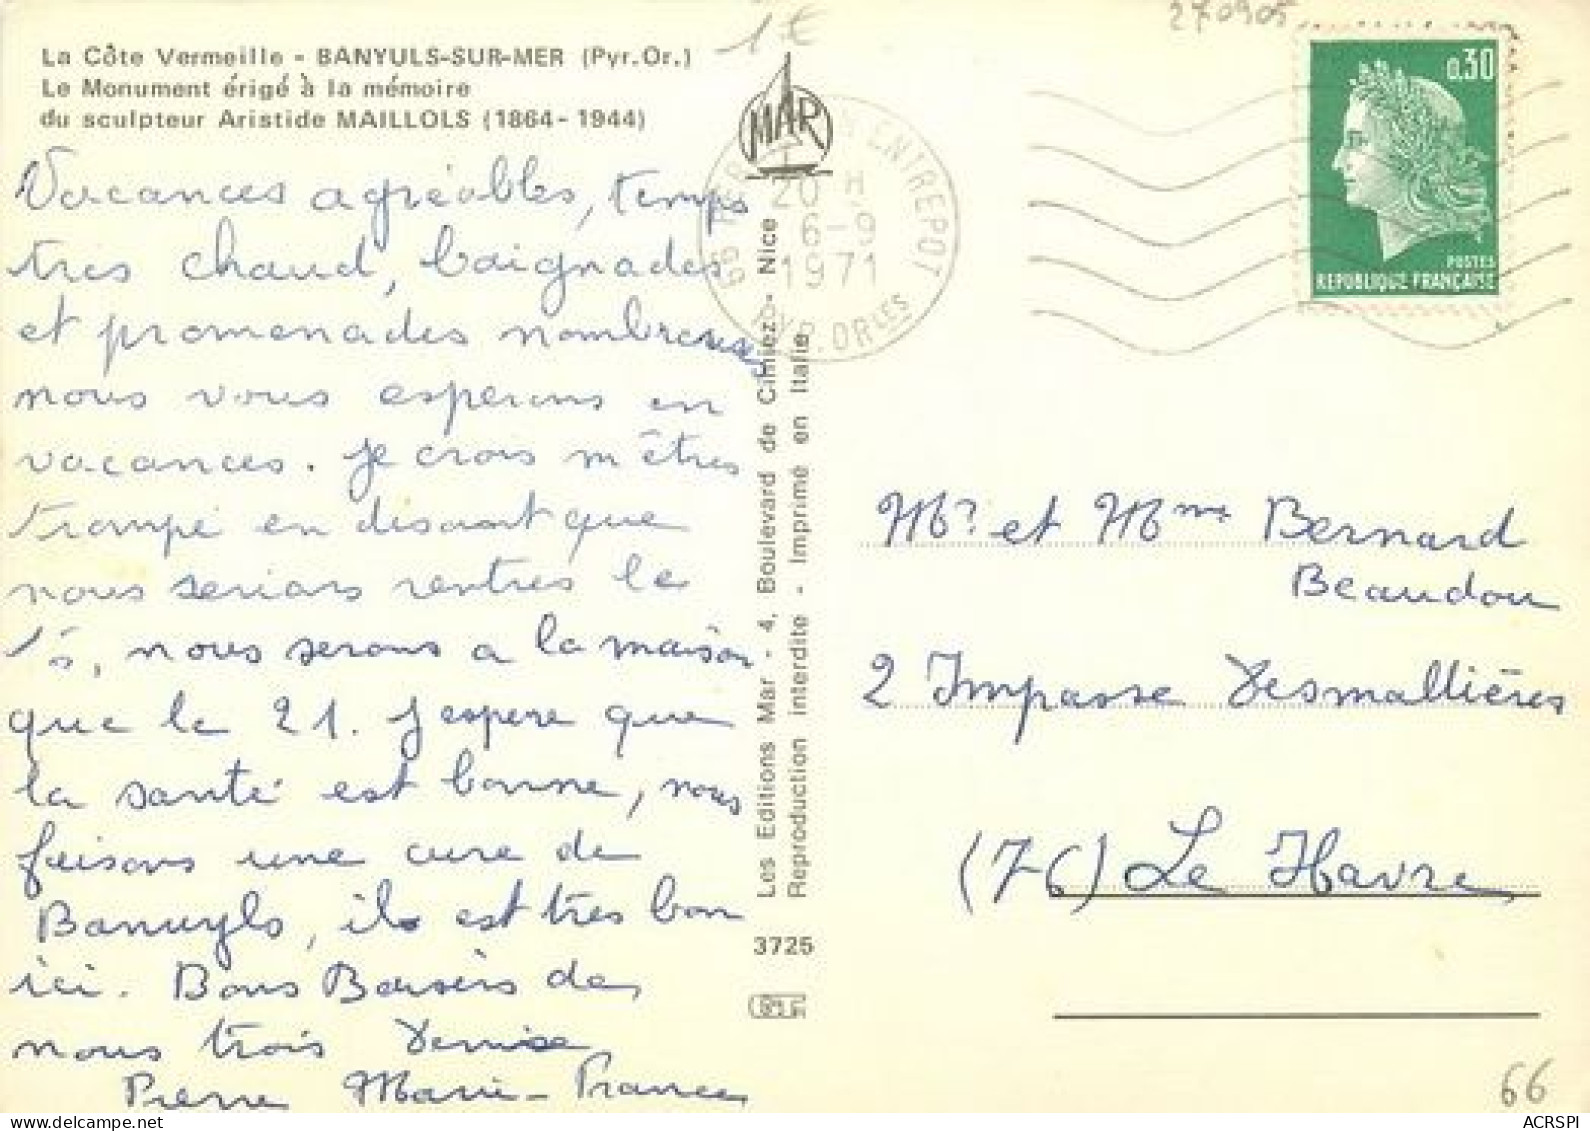 1€
270905
La Côte Vermeille - BANYULS-SUR-MER (Pyr.Or.)
Le Monument érigé à la mémoire
du sculpteur Aristide MAILLOLS (1864-1944)
Vacances agréables, temps
tres chaud, baignades
et promenades nombreuses
nous vous esperons en
vacances. Je crois m'êtres
trompé en disant que
nous serions rentres le
15, nous serons a la maison
que le 21. J espere que
la santé est bonne, nous
faisons une cure de
Banuyls, il est tres bon
ici. Bons Baisers de
nous trois Denise
Pierre Marie-France
MAR
ENTREPOT
20 H
6-9
1971
66 PYR. ORLES
Les Editions Mar - 4, Boulevard de Cimiez - Nice
Reproduction interdite - Imprimé en Italie
3725
0,30
POSTES
REPUBLIQUE FRANÇAISE
Mr et Mme Bernard
Beaudou
2 Impasse Desmallières
(76) Le Havre
66
ACRSPI